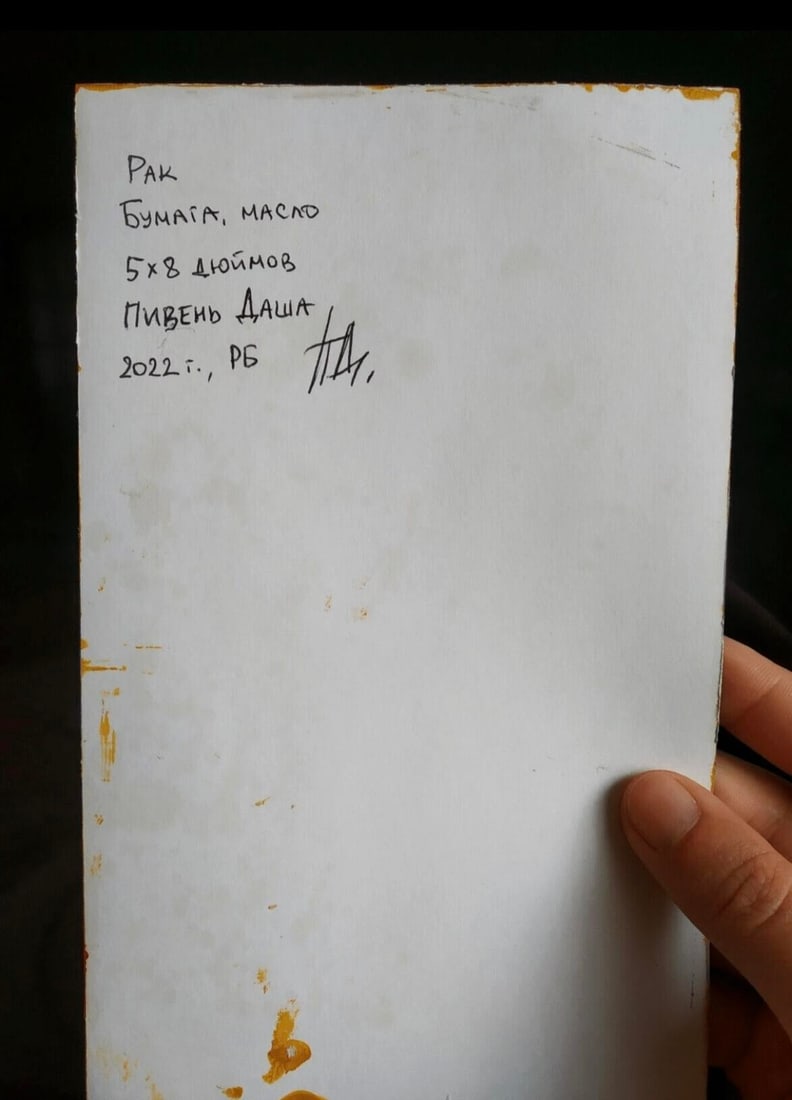 Рак
Бумага, масло
5x8 дюймов
Пивень Даша
2022 г., РБ ПД,